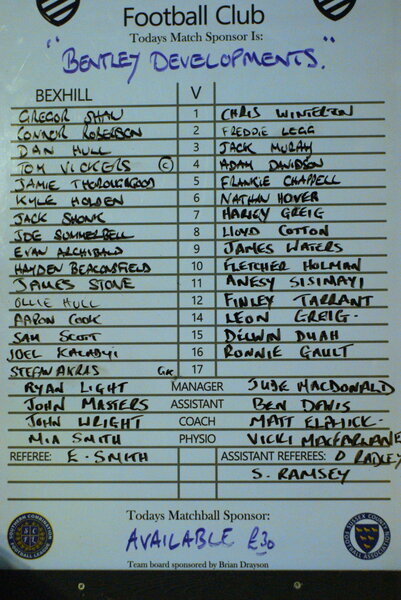 Football Club
Todays Match Sponsor Is:
"BENTLEY DEVELOPMENTS."
BEXHILL V
GREGOR SHAW 1 CHRIS WINTERTON
CONNOR ROBERTSON 2 FREDDIE LEGG
DAN HULL 3 JACK MURAY
TOM VICKERS (C) 4 ADAM DAVIDSON
JAMIE THOROUGHGOOD 5 FRANKIE CHAPPELL
KYLE HOLDEN 6 NATHAN HOVER
JACK SHONK 7 HARLEY GREIG
JOE SUMMERBELL 8 LLOYD COTTON
EVAN ARCHIBALD 9 JAMES WATERS
HAYDEN BEACONSFIELD 10 FLETCHER HOLMAN
JAMES STONE 11 ANESY SISIMAYI
OLLIE HULL 12 FINLEY TARRANT
AARON COOK 14 LEON GREIG.
SAM SCOTT 15 DILWIN DUAH
JOEL KALABYI 16 RONNIE GAULT
STEFAN AKRAS GK 17
RYAN LIGHT MANAGER JUDE MACDONALD
JOHN MASTERS ASSISTANT BEN DAVIS
JOHN WRIGHT COACH MATT ELPHICK.
MIA SMITH PHYSIO VICKI MACFARNANE
REFEREE: E. SMITH ASSISTANT REFEREES: D RADLEY
S. RAMSEY
Todays Matchball Sponsor:
AVAILABLE £30
Team board sponsored by Brian Drayson